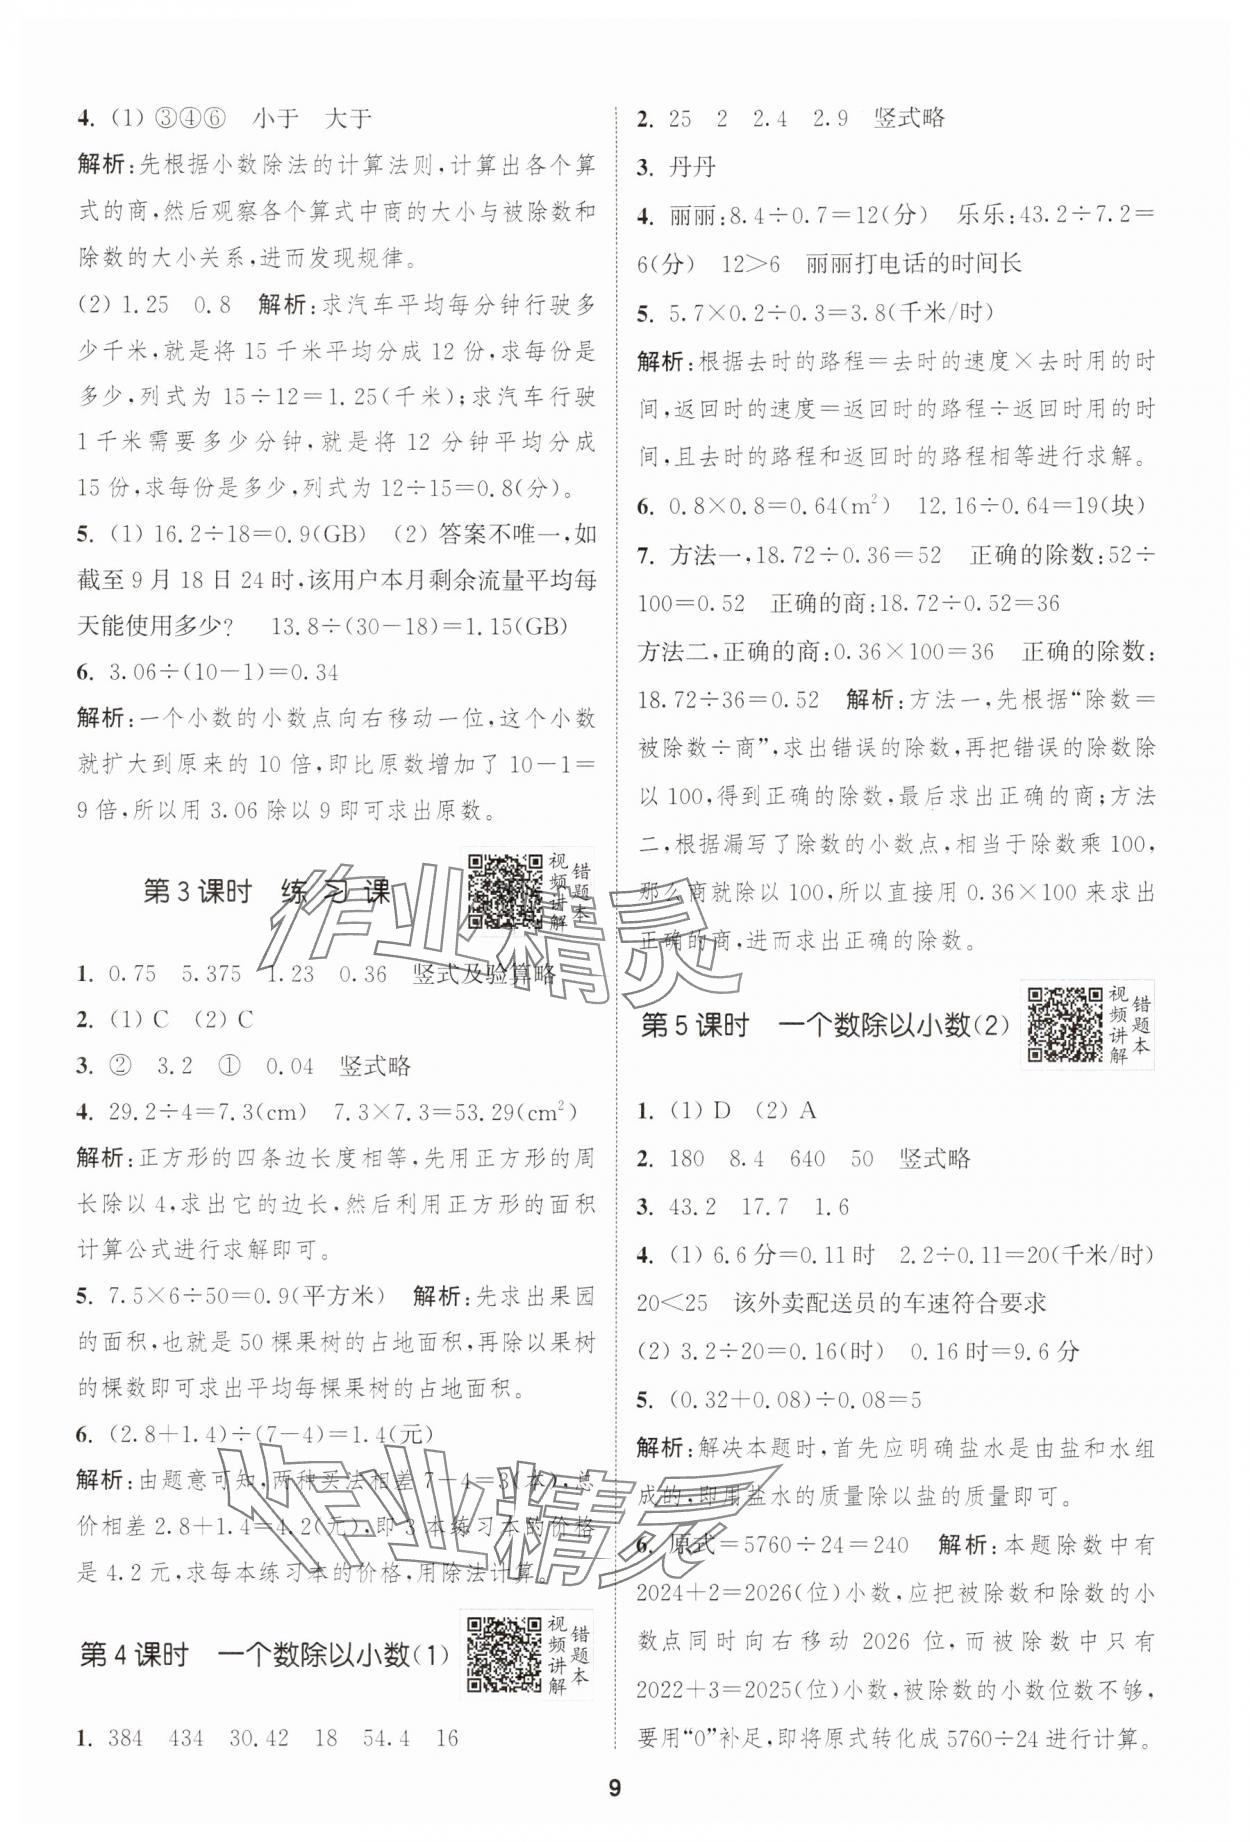 4. (1) ③④⑥　小于　大于
解析:先根据小数除法的计算法则,计算出各个算
式的商,然后观察各个算式中商的大小与被除数和
除数的大小关系,进而发现规律。
(2) 1.25　0.8　解析:求汽车平均每分钟行驶多
少千米,就是将 15 千米平均分成 12 份,求每份是
多少,列式为 15÷12=1.25(千米);求汽车行驶
1 千米需要多少分钟,就是将 12 分钟平均分成
15 份,求每份是多少,列式为 12÷15=0.8(分)。
5. (1) 16.2÷18=0.9(GB)　(2) 答案不唯一,如
截至 9 月 18 日 24 时,该用户本月剩余流量平均每
天能使用多少?　13.8÷(30-18)=1.15(GB)
6. 3.06÷(10-1)=0.34
解析:一个小数的小数点向右移动一位,这个小数
就扩大到原来的 10 倍,即比原数增加了 10-1=
9 倍,所以用 3.06 除以 9 即可求出原数。
第 3 课时　练 习 课
视频讲解
错题本
1. 0.75　5.375　1.23　0.36　竖式及验算略
2. (1) C　(2) C
3. ②　3.2　①　0.04　竖式略
4. 29.2÷4=7.3(cm)　7.3×7.3=53.29(cm²)
解析:正方形的四条边长度相等,先用正方形的周
长除以 4,求出它的边长,然后利用正方形的面积
计算公式进行求解即可。
5. 7.5×6÷50=0.9(平方米)　解析:先求出果园
的面积,也就是 50 棵果树的占地面积,再除以果树
的棵数即可求出平均每棵果树的占地面积。
6. (2.8+1.4)÷(7-4)=1.4(元)
解析:由题意可知,两种买法相差 7-4=3(本),总
价相差 2.8+1.4=4.2(元),即 3 本练习本的价格
是 4.2 元,求每本练习本的价格,用除法计算。
第 4 课时　一个数除以小数(1)
视频讲解
错题本
1. 384　434　30.42　18　54.4　16
2. 25　2　2.4　2.9　竖式略
3. 丹丹
4. 丽丽:8.4÷0.7=12(分)　乐乐:43.2÷7.2=
6(分)　12>6　丽丽打电话的时间长
5. 5.7×0.2÷0.3=3.8(千米/时)
解析:根据去时的路程=去时的速度×去时用的时
间,返回时的速度=返回时的路程÷返回时用的时
间,且去时的路程和返回时的路程相等进行求解。
6. 0.8×0.8=0.64(m²)　12.16÷0.64=19(块)
7. 方法一,18.72÷0.36=52　正确的除数:52÷
100=0.52　正确的商:18.72÷0.52=36
方法二,正确的商:0.36×100=36　正确的除数:
18.72÷36=0.52　解析:方法一,先根据“除数=
被除数÷商”,求出错误的除数,再把错误的除数除
以 100,得到正确的除数,最后求出正确的商;方法
二,根据漏写了除数的小数点,相当于除数乘 100,
那么商就除以 100,所以直接用 0.36×100 来求出
正确的商,进而求出正确的除数。
第 5 课时　一个数除以小数(2)
视频讲解
错题本
1. (1) D　(2) A
2. 180　8.4　640　50　竖式略
3. 43.2　17.7　1.6
4. (1) 6.6 分=0.11 时　2.2÷0.11=20(千米/时)
20<25　该外卖配送员的车速符合要求
(2) 3.2÷20=0.16(时)　0.16 时=9.6 分
5. (0.32+0.08)÷0.08=5
解析:解决本题时,首先应明确盐水是由盐和水组
成的,即用盐水的质量除以盐的质量即可。
6. 原式=5760÷24=240　解析:本题除数中有
2024+2=2026(位)小数,应把被除数和除数的小
数点同时向右移动 2026 位,而被除数中只有
2022+3=2025(位)小数,被除数的小数位数不够,
要用“0”补足,即将原式转化成 5760÷24 进行计算。
9
作业精灵
作业精灵